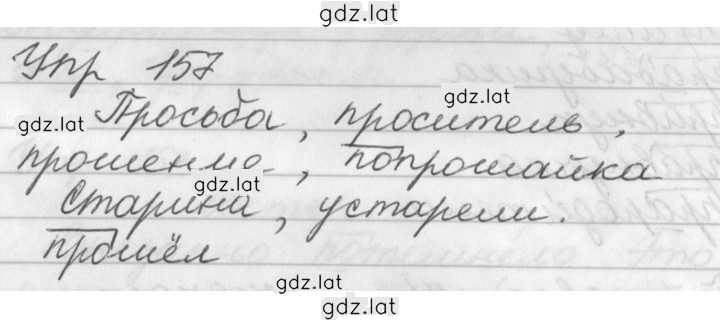 gdz.lat
Упр 157
gdz.lat
Просьба, проситель,
gdz.lat
прошение, попрошайка
gdz.lat
Старина, устарели.
прошёл
gdz.lat
gdz.lat